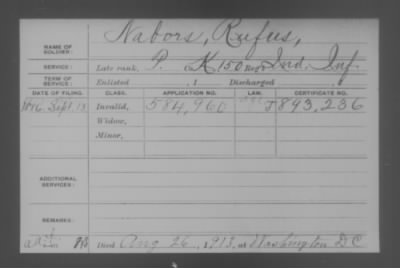 Nabors, Rufus,
NAME OF SOLDIER:
SERVICE: Late rank, P. Co. K, 150 Reg't Ind. Inf.
TERM OF SERVICE: Enlisted , 1 Discharged , 1
DATE OF FILING. CLASS. APPLICATION NO. LAW. CERTIFICATE NO.
Sept. 18 Invalid, 584,960 J 893,236
Widow,
Minor,
ADDITIONAL SERVICES:
REMARKS:
Died Aug 26, 1913, at Washington D C